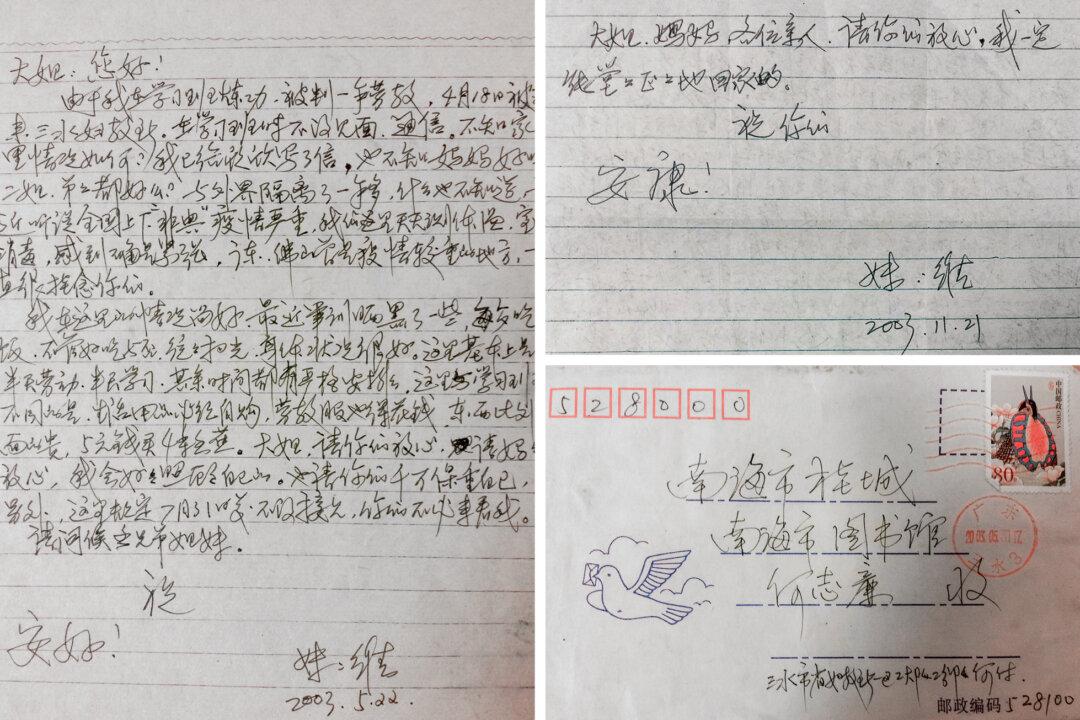 大姐：您好！
由于我在学习班里炼功，被判一年劳教，4月18日被
来三水妇教所。在学习班时不没见面、通信。不知家
里情况如何？我已给欣欣写了信，也不知妈妈好
二姐、弟弟都好么？与外界隔离了一年多，什么也不知道，
近听说全国上下"非典"疫情严重，我们这里天天测体温，
消毒，感到确是紧张，广东、佛山曾是疫情较重的地方，一
直很挂念你们。
我在这里的情况尚好，最近军训晒黑了一些，每次吃
饭，不管好吃与否，统统扫光，身体状况很好。这里基本上是
半天劳动，半天学习，其余时间都有严格安排。这里与学习班
不同的是，生活用品必须自购，劳教服也得花钱，东西比外
面贵，5元钱买4条香蕉。大姐，请你们放心，请妈妈
放心，我会好好照顾自己的。也请你们千万保重自己，
另外，这里规定7月31日前不可接见，你们不必来看我。
请问候各兄弟姐妹。
祝
安好！
妹：维
2003.5.22.
大姐、妈妈、各位亲人，请你们放心，我一定
能堂堂正正地回家的。
祝你们
安康！
妹：维
2003.11.21
528000
中国邮政 CHINA
80
南海市桂城
南海市图书馆
何志廉 收
广东
2003.05.31.17
三水3
三水市省妇教所二大队二分队 何付
邮政编码 528100